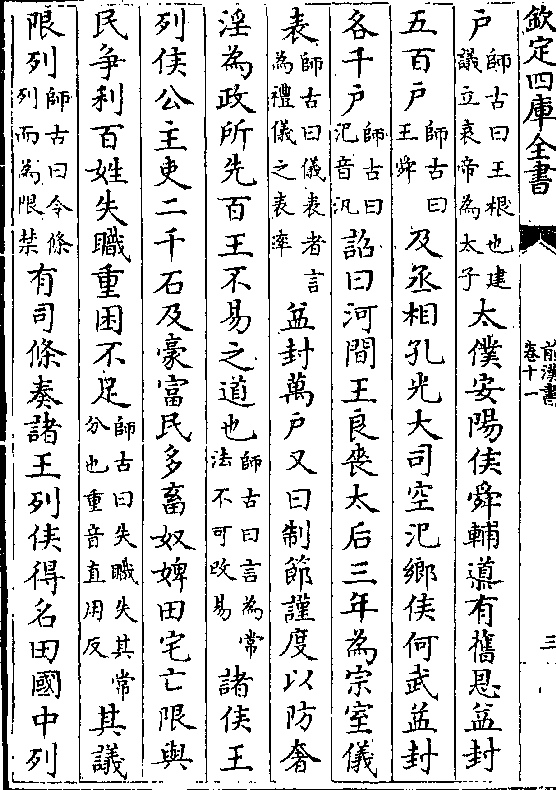 欽定四庫全書
前漢書
卷十一
三
戶師古曰王根也建議立哀帝為太子太僕安陽侯舜輔導有舊恩益封
五百戶師古曰王舜及丞相孔光大司空氾鄉侯何武益封
各千戶師古曰氾音汎詔曰河間王良喪太后三年為宗室儀
表師古曰儀表者言為禮儀之表率益封萬戶又曰制節謹度以防奢
淫為政所先百王不易之道也師古曰言為常法不可改易諸侯王
列侯公主吏二千石及豪富民多畜奴婢田宅亡限與
民爭利百姓失職重困不足師古曰失職失其常分也重音直用反其議
限列師古曰令條列而為限禁有司條奏諸王列侯得名田國中列